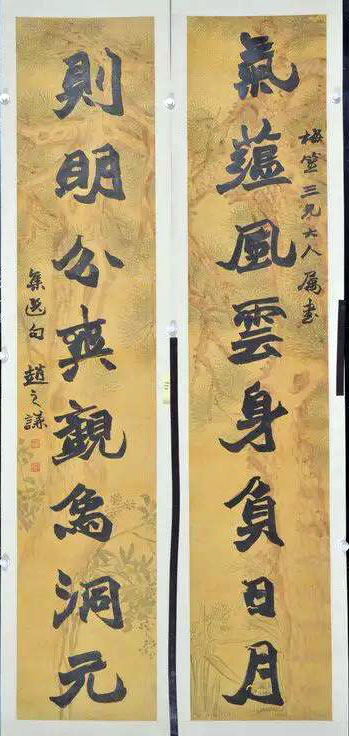 氣蘊風雲身負日月
梅三兄大人屬書
則明分爽觀象洞元
集選句 趙之謙